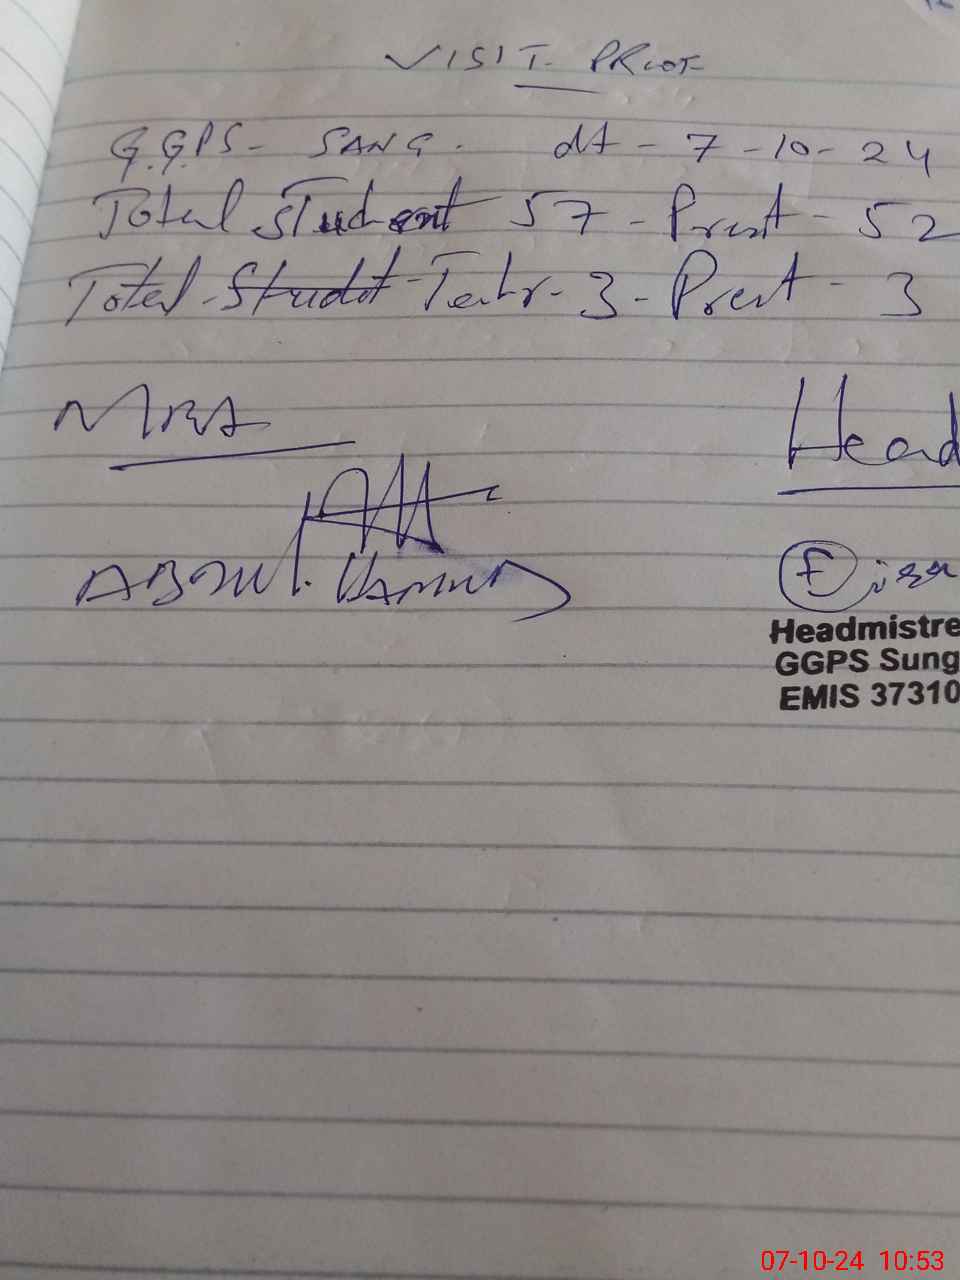 VISIT PROOF
G.GPS - SANG. dt - 7 - 10 - 24
Total Student 57 - Presnt - 52
Total - Studdt - Teachr - 3 - Presnt - 3
Head
ABDUL HAMEED
Headmistre
GGPS Sung
EMIS 37310
07-10-24 10:53